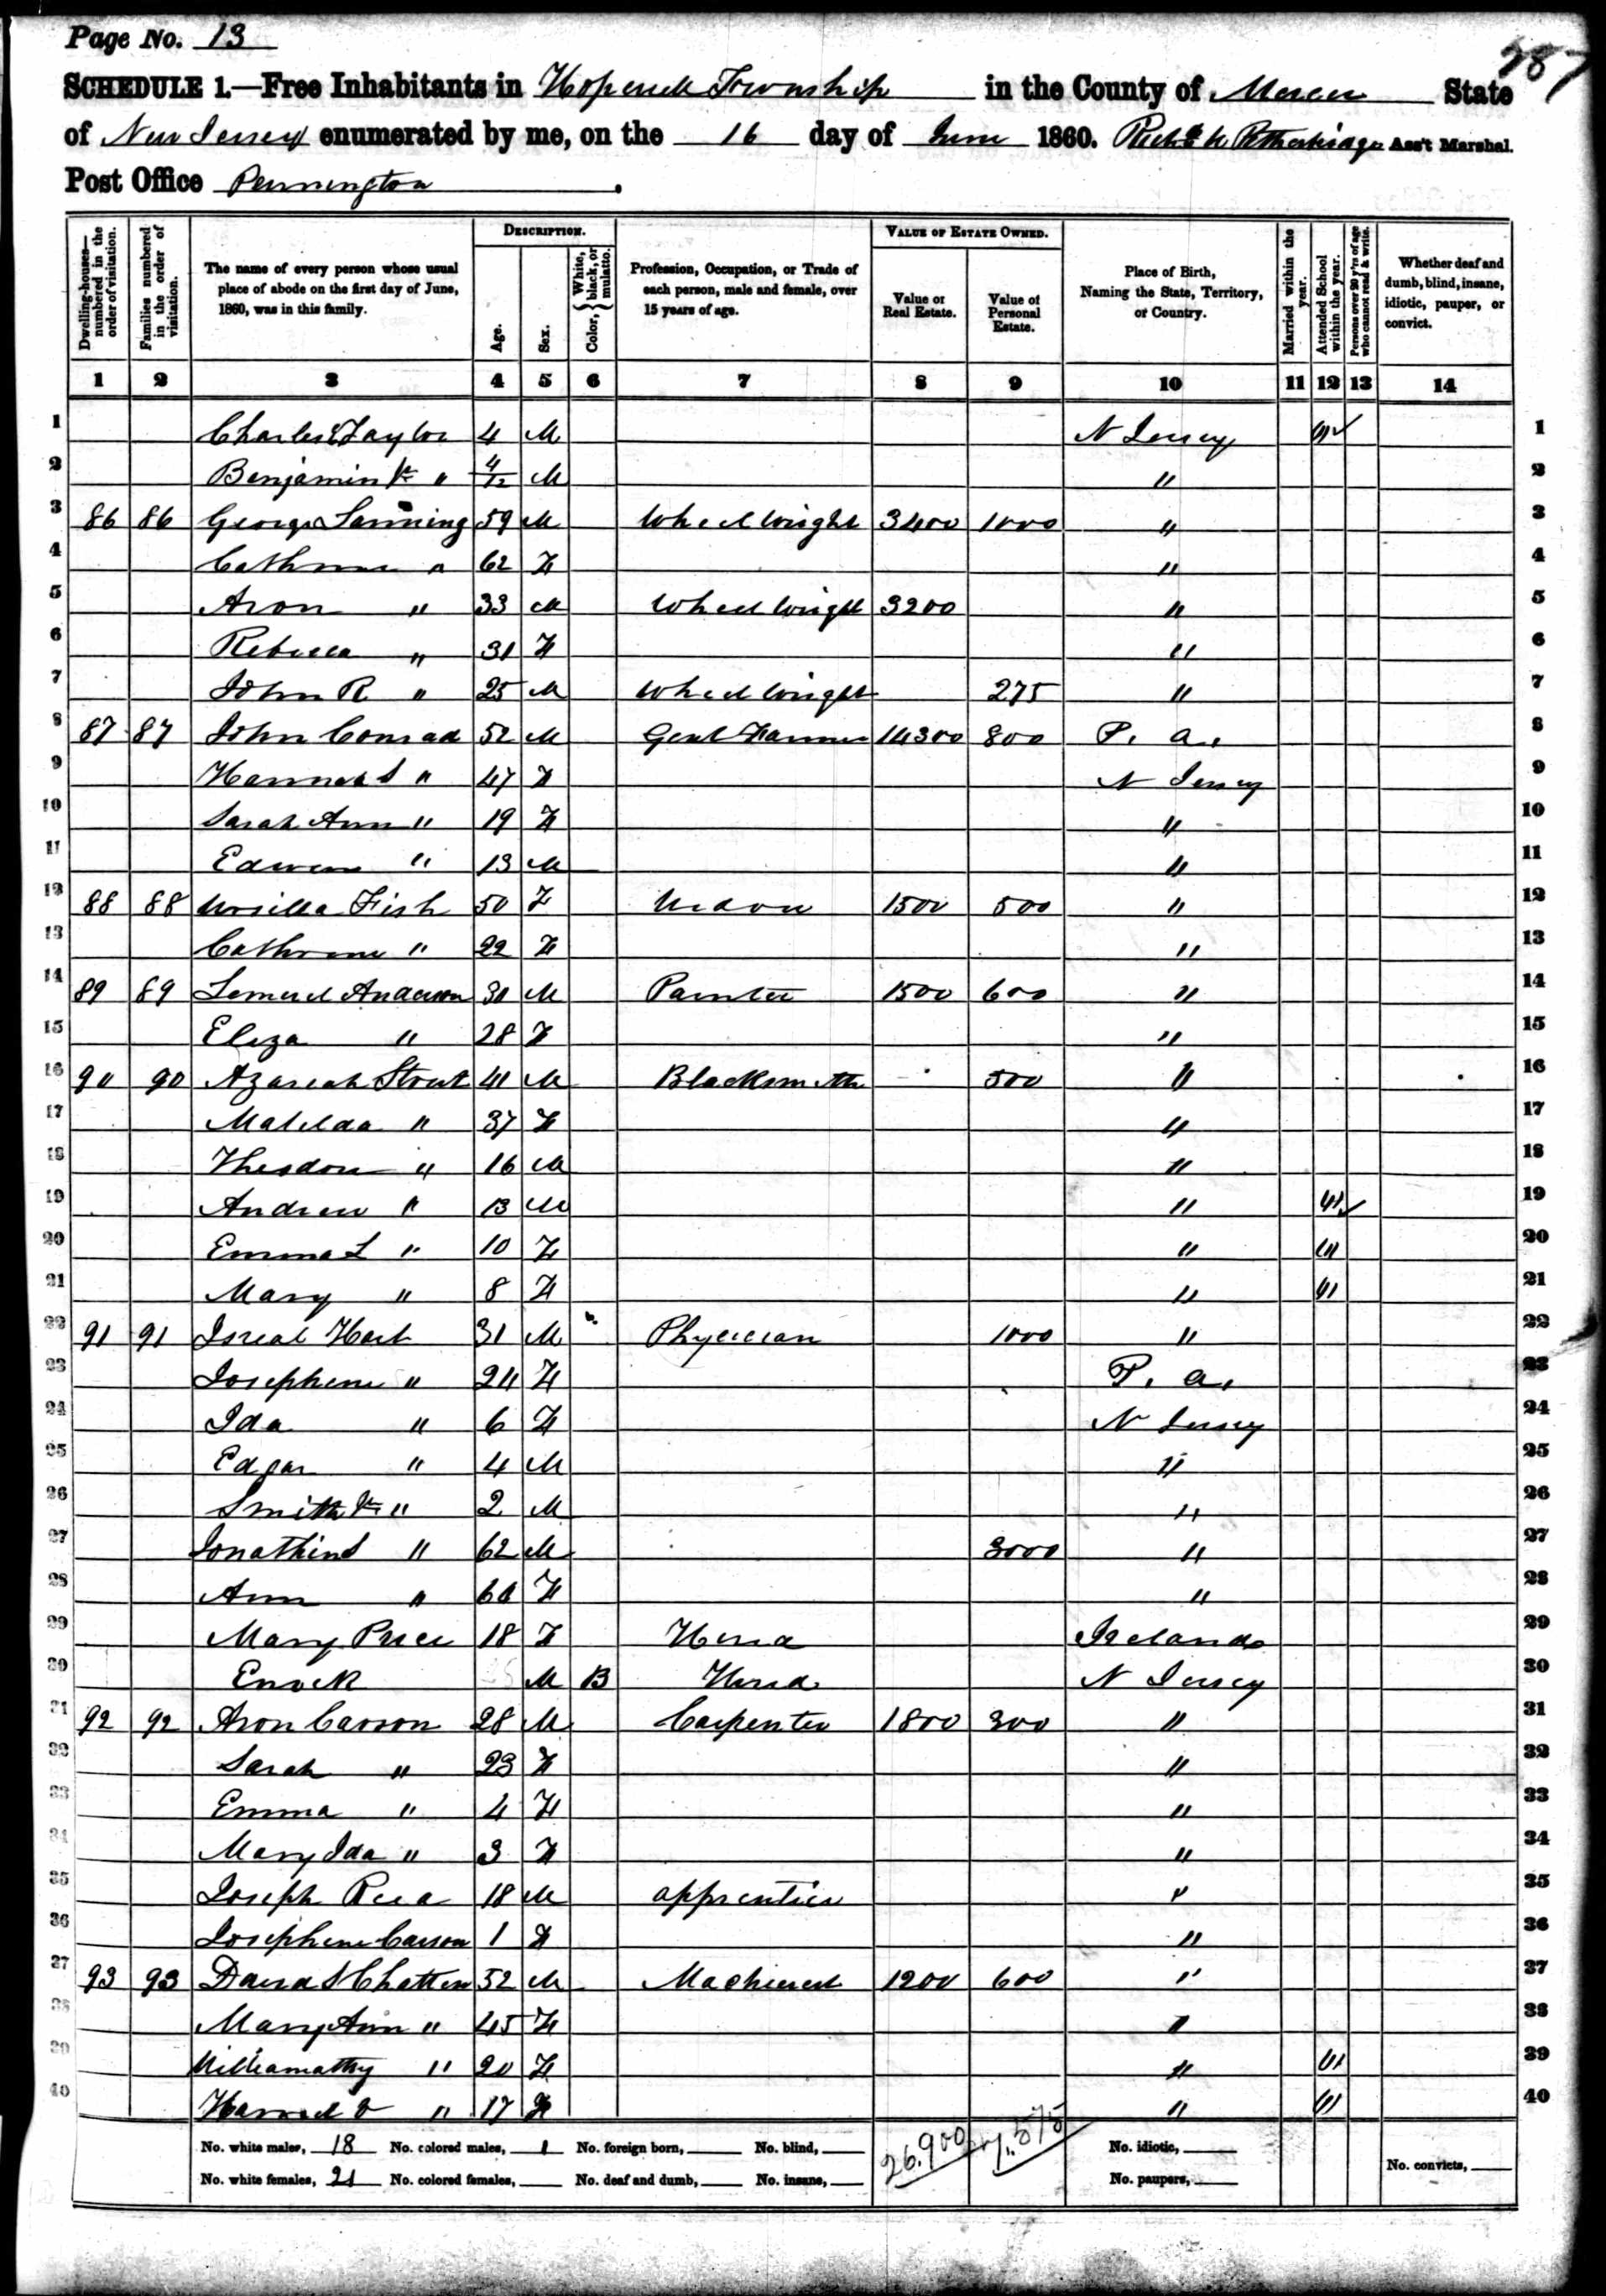 Page No. 13
287
SCHEDULE 1.—Free Inhabitants in Hopewell Township in the County of Mercer State
of New Jersey enumerated by me, on the 16 day of June 1860. Ass't Marshal.
Post Office Pennington.
Dwelling-houses—numbered in the order of visitation.
Families numbered in the order of visitation.
The name of every person whose usual place of abode on the first day of June, 1860, was in this family.
DESCRIPTION.
Age.
Sex.
Color, { White, black, or mulatto.
Profession, Occupation, or Trade of each person, male and female, over 15 years of age.
VALUE OF ESTATE OWNED.
Value of Real Estate.
Value of Personal Estate.
Place of Birth, Naming the State, Territory, or Country.
Married within the year.
Attended School within the year.
Persons over 20 y'rs of age who cannot read & write.
Whether deaf and dumb, blind, insane, idiotic, pauper, or convict.
1 2 3 4 5 6 7 8 9 10 11 12 13 14
1 Charles Taylor 4 M N Jersey 1
2 Benjamin " 4/12 M " 2
3 86 86 George Lanning 59 M Wheelwright 3400 1000 " 3
4 Cathrine " 62 F " 4
5 Aron " 33 M Wheelwright 3200 " 5
6 Rebecca " 31 F " 6
7 John R " 25 M Wheelwright 275 " 7
8 87 87 John Conrad 52 M Gent Farmer 14300 800 P. a. 8
9 Hannah S " 47 F N Jersey 9
10 Sarah Ann " 19 F " 10
11 Edwin " 13 M " 11
12 88 88 Ursilla Fish 50 F Widow 1500 500 " 12
13 Cathrine " 22 F " 13
14 89 89 Lemuel Anderson 31 M Painter 1500 600 " 14
15 Eliza " 28 F " 15
16 90 90 Azariah Stout 41 M Blacksmith 500 " 16
17 Matilda " 37 F " 17
18 Thesdore " 16 M " 18
19 Andrew " 13 M " 19
20 Emma L " 10 F " 20
21 Mary " 8 F " 21
22 91 91 Isreal Hart 31 M Physician 1000 " 22
23 Josephine " 24 F P. a. 23
24 Ida " 6 F N Jersey 24
25 Edgar " 4 M " 25
26 Smith " 2 M " 26
27 Jonathin S " 62 M 3000 " 27
28 Ann " 66 F " 28
29 Mary Price 18 F Hired Ireland 29
30 Enock M B Hired N Jersey 30
31 92 92 Aron Carson 28 M Carpenter 1800 300 " 31
32 Sarah " 23 F " 32
33 Emma " 4 F " 33
34 Mary Ida " 3 F " 34
35 Joseph Reed 18 M apprentice " 35
36 Josephine Carson 1 F " 36
37 93 93 David S Chatten 52 M Machinest 1200 600 " 37
38 Mary Ann " 45 F " 38
39 " 20 F " 39
40 " 17 F " 40
No. white males, 18 No. colored males, 1 No. foreign born, No. blind, 26.900 7.575 No. idiotic,
No. white females, 21 No. colored females, No. deaf and dumb, No. insane, No. paupers, No. convicts,